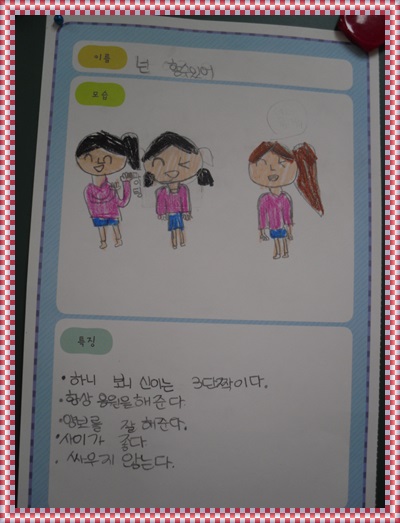 이름
넌 할수있어
모습
특징
• 하니 보니 신이는 3단짝이다.
• 항상 응원을 해준다
• 양보를 잘 해준다.
• 사이가 좋다
• 싸우지 않는다.